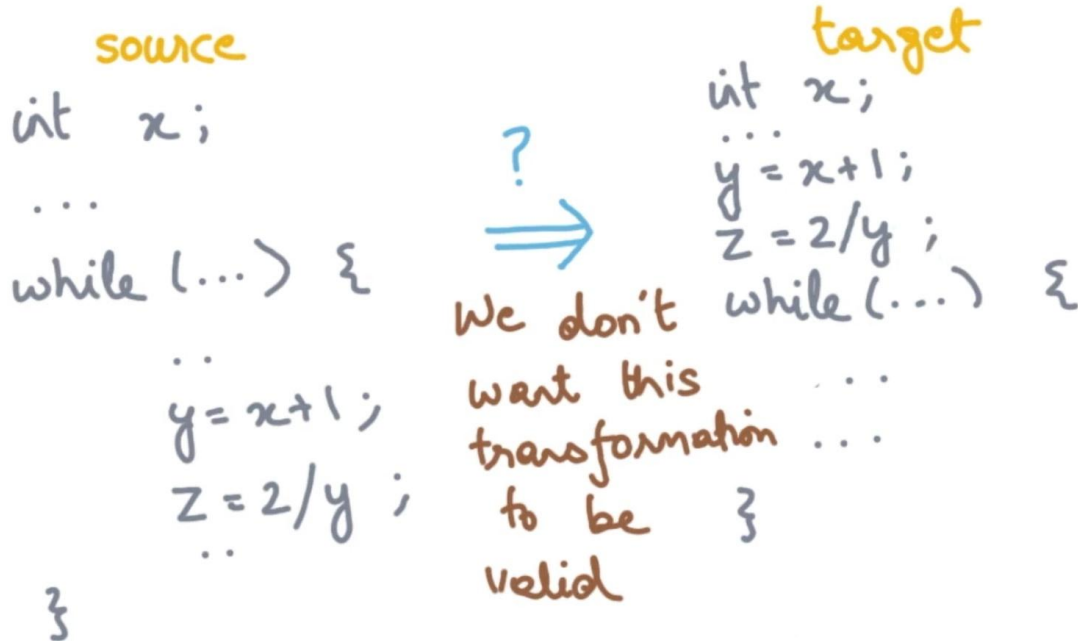 source
int x;
...
while (...) {
..
y = x+1;
z = 2/y ;
..
}
?
⇒
We don't
want this
transformation
to be
valid
target
int x;
...
y = x+1;
z = 2/y ;
while (...) {
...
...
}